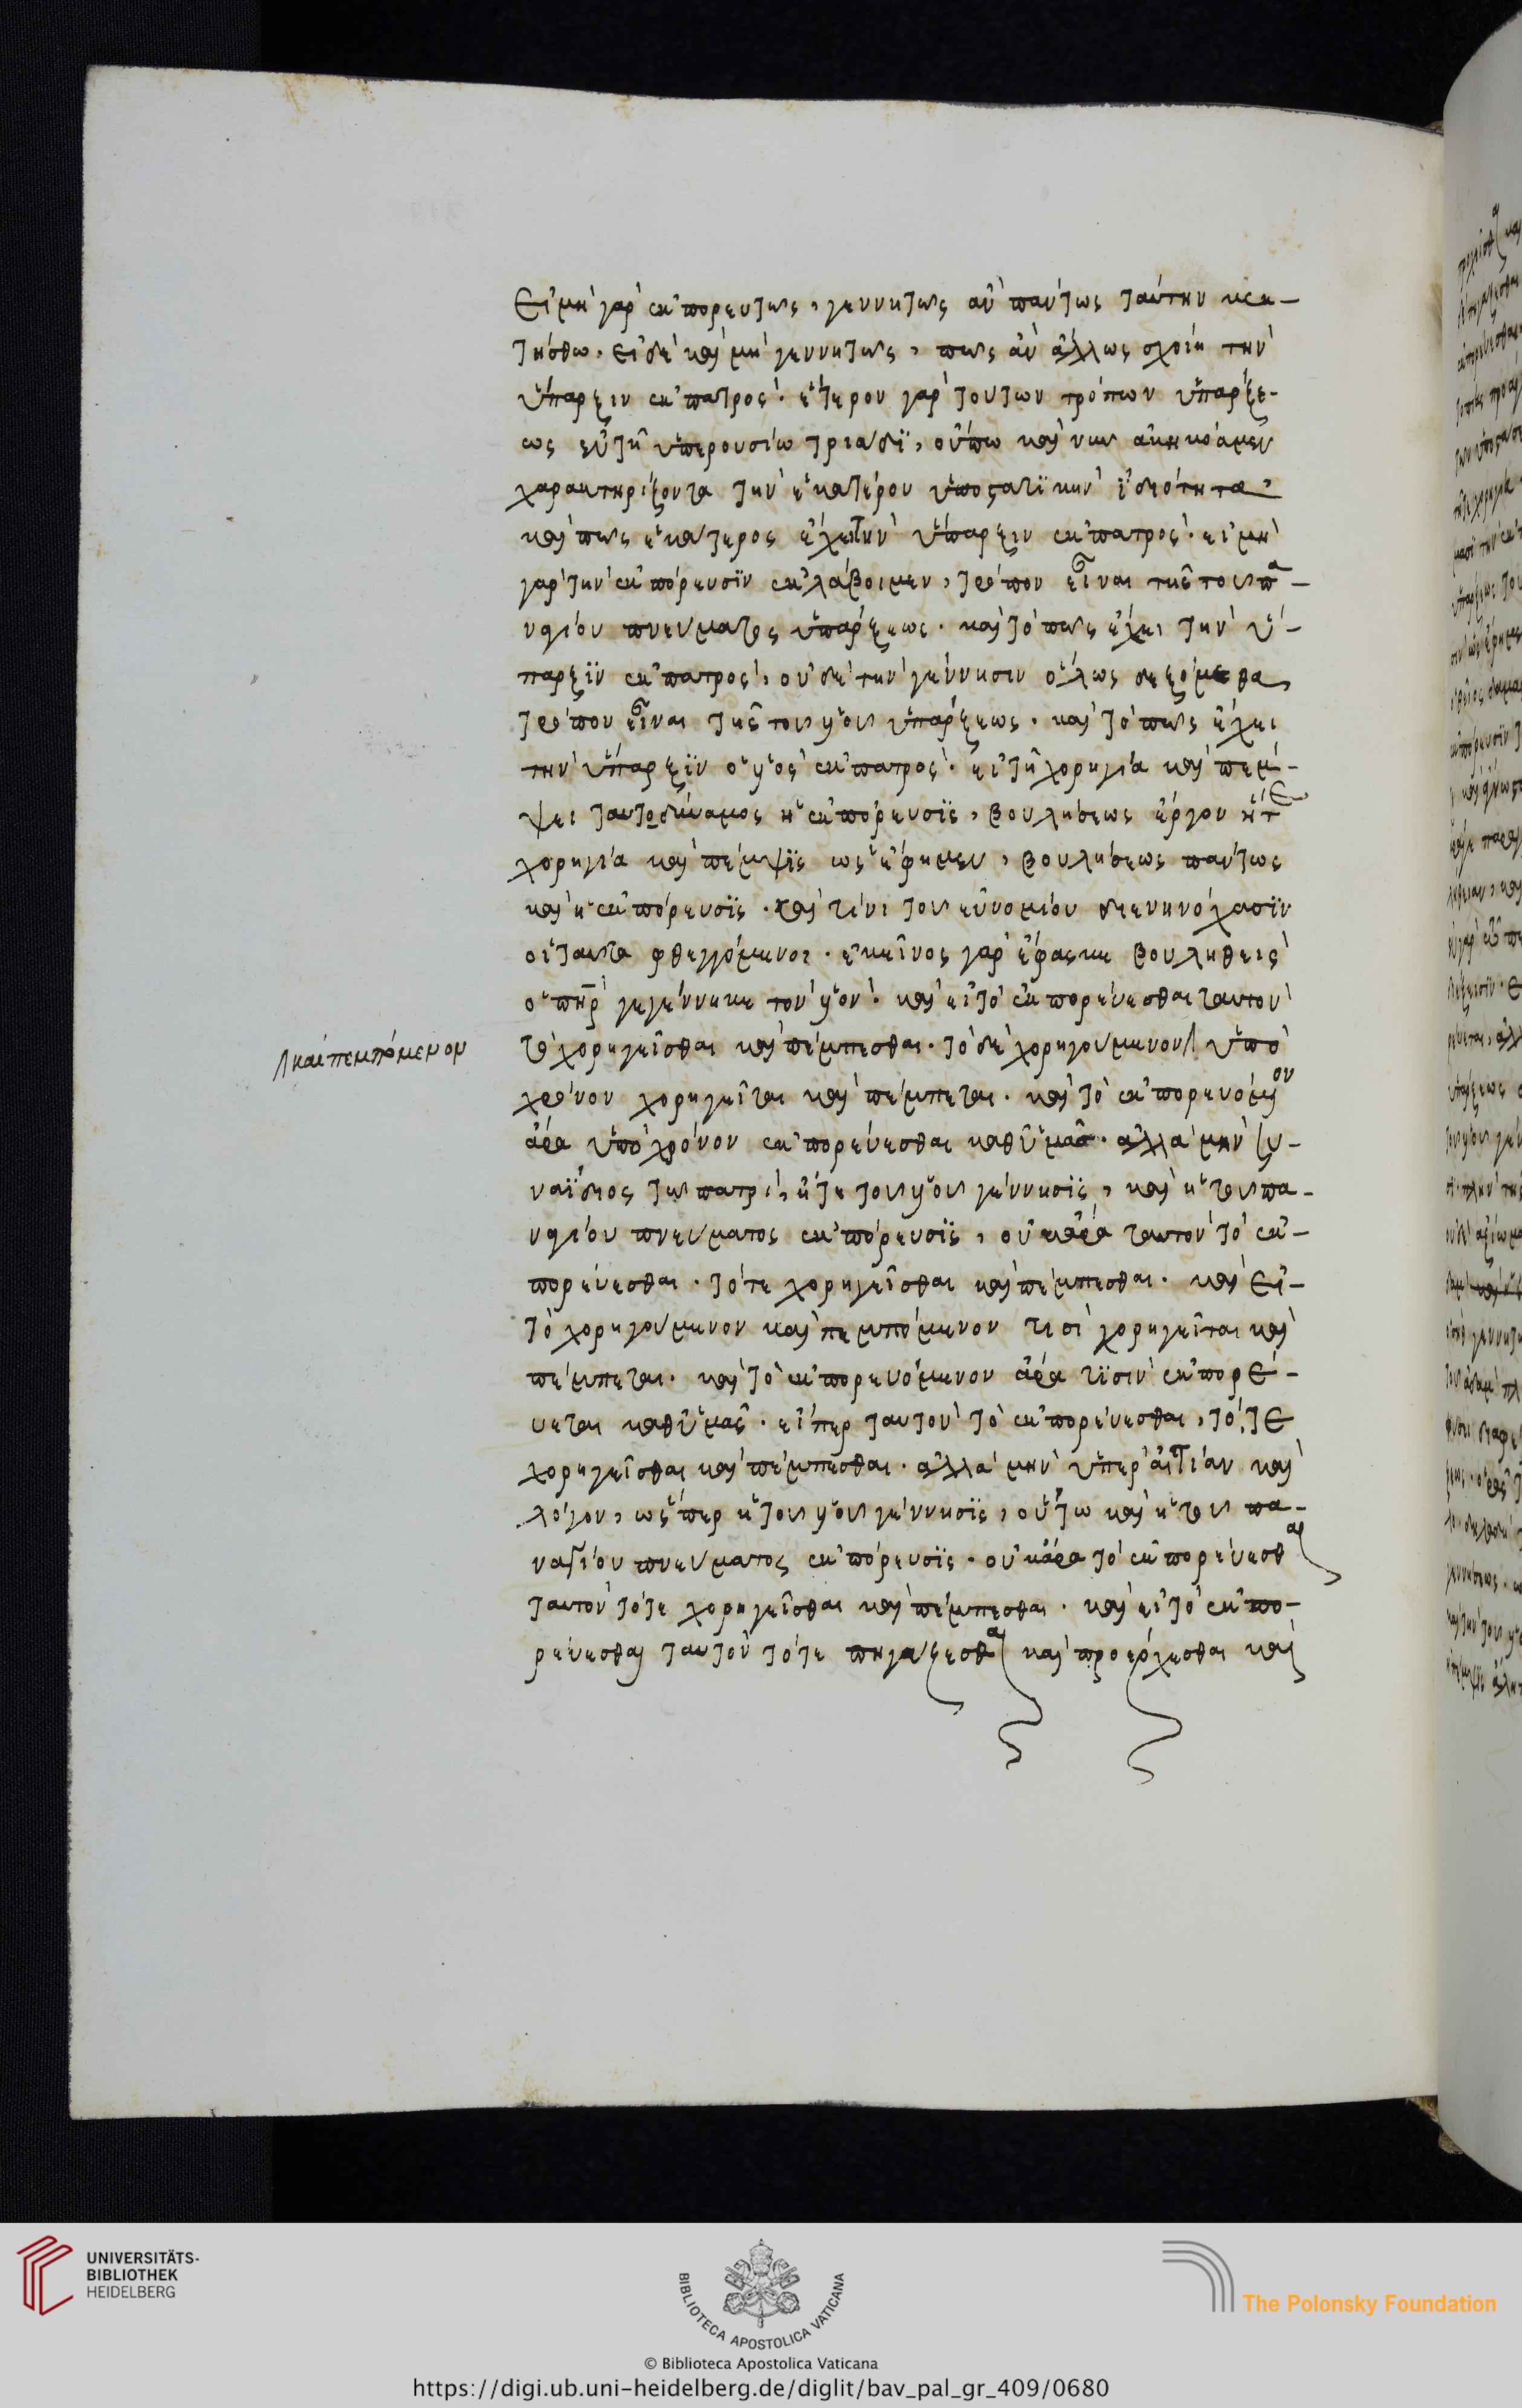 Εἰ μὴ γὰρ ἐκπορευτῶς, γεννητῶς ἂν πάντως ταύτην κεκ-
τήσθω. εἰ δὲ καὶ μὴ γεννητῶς, πῶς ἂν ἄλλως σχοίη τὴν
ὕπαρξιν ἐκ πατρός. ἕτερον γὰρ τούτων τρόπων ὑπάρξε-
ως ἐν τῆ ὑπερουσίω τριάδϊ, οὔπω καὶ νῦν ἀκηκόαμεν
χαρακτηρίζοντα τὴν ἑκατέρου ὑποστατϊκὴν ἰδιότητα
καὶ πῶς ἑκάτερος ἔχει τὴν ὕπαρξιν ἐκ πατρός. εἰ μὴ
γὰρ τὴν ἐκπόρευσϊν ἐκλάβοιμεν, τρόπον εἶναι τῆς τοῦ πα-
ναγίου πνεύματος ὑπάρξεως. καὶ τὸ πῶς ἔχει τὴν ὕ-
παρξϊν ἐκ πατρὸς, οὐδὲ τὴν γέννησιν ὅλως δεξόμεθα,
τρόπον εἶναι τῆς τοῦ υἱοῦ ὑπάρξεως. καὶ τὸ πῶς ἔχει
τὴν ὕπαρξϊν ὁ υἱὸς ἐκ πατρός. εἰ τῆ χορηγία καὶ πέμ-
ψει ταυτοδύναμος ἡ ἐκπόρευσϊς, βουλήσεως ἔργον ἥτε
χορηγία καὶ πέμψϊς ὡς ἔφημεν, βουλήσεως πάντως
καὶ ἡ ἐκπόρευσϊς. καὶ τίνι τοῦ εὐνομίου διενηνόχασϊν
οἱ ταῦτα φθεγγόμενοι. ἐκεῖνος γὰρ ἔφασκε βουληθεὶς
ὁ πηρ γεγέννηκε τὸν υἱόν. καὶ εἰ τὸ ἐκπορεύεσθαι ταυτὸν
τῶ χορηγεῖσθαι καὶ πέμπεσθαι. τὸ δὲ χορηγούμενον // ὑπὸ
// καὶ πεμπόμενον
χρόνον χορηγεῖται καὶ πέμπεται. καὶ τὸ ἐκπορευόμενον
ἄρα ὑπὸ χρόνον ἐκπορεύεσθαι καθ' ὑμᾶς. ἀλλὰ μὴν συ-
ναΐδιος τῶ πατρὶ, ἥ τε τοῦ υἱοῦ γέννησϊς, καὶ ἡ τοῦ πα-
ναγίου πνεύματος ἐκπόρευσϊς, οὐκ ἄρα ταυτὸν τὸ ἐκ-
πορεύεσθαι. τό τε χορηγεῖσθαι καὶ πέμπεσθαι. καὶ εἰ
τὸ χορηγούμενον καὶ πεμπόμενον τισὶ χορηγεῖται καὶ
πέμπεται. καὶ τὸ ἐκπορευόμενον ἄρα τϊσὶν ἐκπορεύ-
εται καθ' ὑμᾶς. εἴπερ ταυτὸν τὸ ἐκπορεύεσθαι, τό, τε
χορηγεῖσθαι καὶ πέμπεσθαι. ἀλλὰ μὴν ὑπὲρ αἰτίαν καὶ
λόγον, ὥσπερ ἡ τοῦ υἱοῦ γέννησϊς, οὕτω καὶ ἡ τοῦ πα-
ναγίου πνεύματος ἐκπόρευσϊς. οὐκ ἄρα τὸ ἐκπορεύεσθαι
ταυτὸν τό τε χορηγεῖσθαι καὶ πέμπεσθαι. καὶ εἰ τὸ ἐκπο-
ρεύεσθαι ταυτὸν τό τε πηγάζεσθαι καὶ προέρχεσθαι καὶ
UNIVERSITÄTS-
BIBLIOTHEK
HEIDELBERG
BIBLIOTECA APOSTOLICA VATICANA
The Polonsky Foundation
© Biblioteca Apostolica Vaticana
https://digi.ub.uni-heidelberg.de/diglit/bav_pal_gr_409/0680